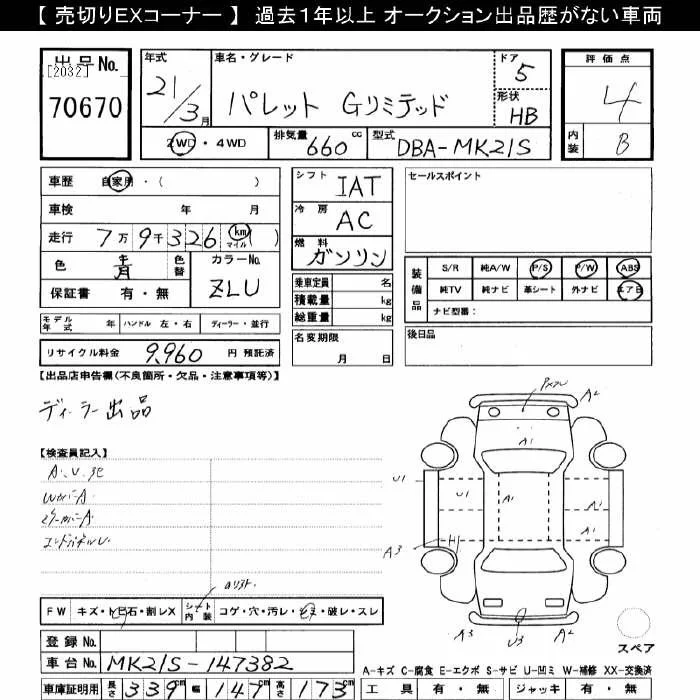 【 売切りEXコーナー 】 過去1年以上 オークション出品歴がない車両
出品No.
[2032]
70670
年式
21/3月
車名・グレード
パレット Gリミテッド
ドア
5
形状
HB
2WD・4WD
排気量
660 cc
型式
DBA-MK21S
評価点
4
内装
B
車歴 自家用・( )
車検 年 月
走行 7万9千326 km マイル ( )
色 青 色替
カラーNo.
ZLU
保証書 有・無
シフト
IAT
冷房
AC
燃料
ガソリン
乗車定員 名
積載量 kg
総重量 kg
名変期限
月 日
セールスポイント
装備品
S/R 純A/W P/S P/W ABS
純TV 純ナビ 革シート 外ナビ エアB
ナビ型番:
後日品
モデル年式 年 ハンドル 左・右 ディーラー・並行
リサイクル料金 9,960 円 預託済
【出品店申告欄(不良箇所・欠品・注意事項等)】
ディーラー出品
【検査員記入】
A.U.
エンドパネルU.
A2
A1
U1
U1
A1
A1
A1
A3
A3
U3
A2
スペア
FW キズ・トビ石・割レX
シート内装 コゲ・穴・汚レ・シミ・破レ・スレ
登録No.
車台No. MK21S-147382
車庫証明用 長さ 339cm 幅 147cm 高さ 173cm
A-キズ C-腐食 E-エクボ S-サビ U-凹ミ W-補修 XX-交換済
工具 有・無 ジャッキ 有・無